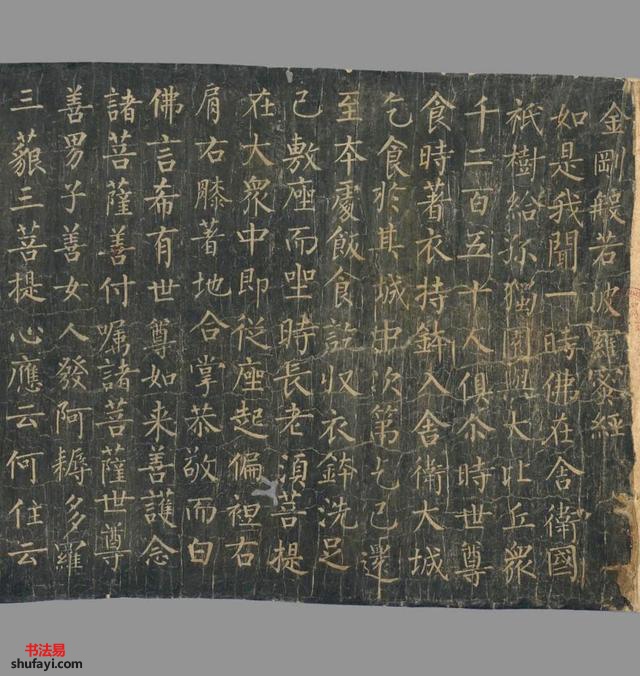 金剛般若波羅蜜經
如是我聞一時佛在舍衛國
祇樹給孤獨園與大比丘眾
千二百五十人俱尒時世尊
食時著衣持鉢入舍衛大城
乞食於其城中次第乞已還
至本處飯食訖收衣鉢洗足
已敷座而坐時長老須菩提
在大眾中即從座起偏袒右
肩右膝著地合掌恭敬而白
佛言希有世尊如来善護念
諸菩薩善付嘱諸菩薩世尊
善男子善女人發阿耨多羅
三藐三菩提心應云何住云
书法易
shufayi.com